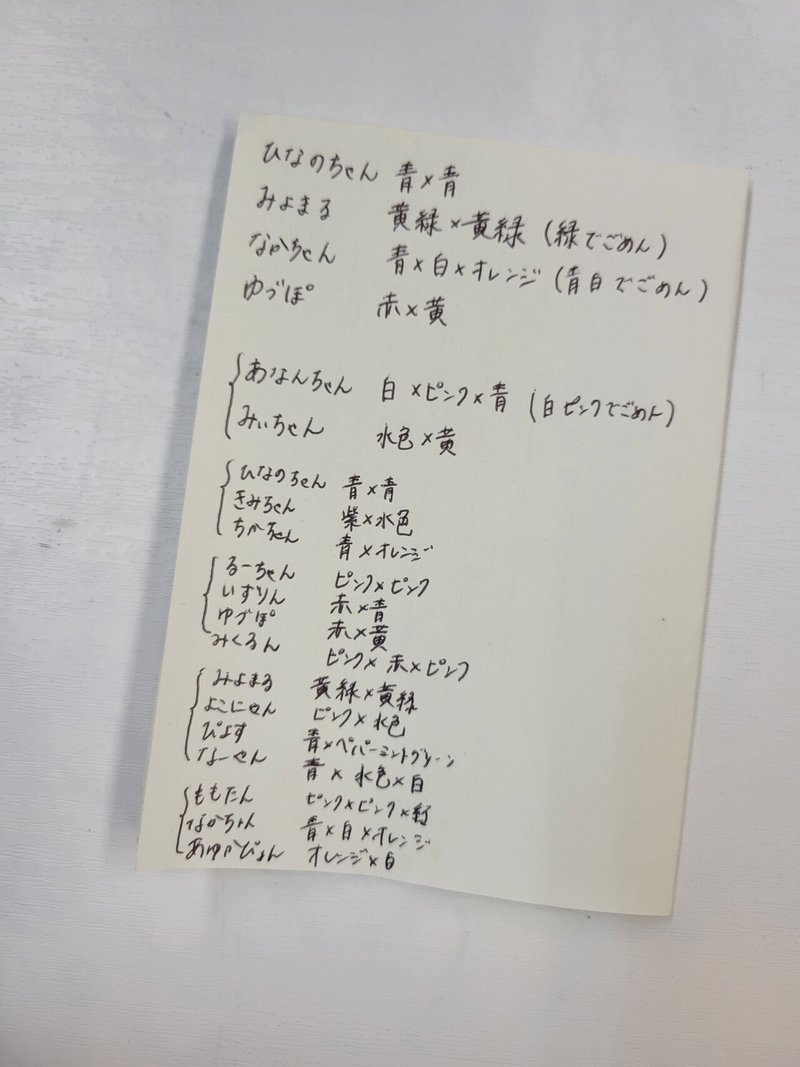 ひなのちゃん 青×青
みよまる 黄緑×黄緑(緑でごめん)
なかちゃん 青×白×オレンジ(青白でごめん)
ゆづぽ 赤×黄
あなんちゃん 白×ピンク×青(白ピンクでごめん)
みぃちゃん 水色×黄
ひなのちゃん 青×青
きみちゃん 紫×水色
ちかちゃん 青×オレンジ
るーちゃん ピンク×ピンク
いずりん 赤×青
ゆづぽ 赤×黄
みくるん ピンク×赤×ピンク
みよまる 黄緑×黄緑
よこにゃん ピンク×水色
ぴよす 青×ペパーミントグリーン
なーゃん 青×水色×白
ももたん ピンク×ピンク×緑
なかちゃん 青×白×オレンジ
あゆかぴょん オレンジ×白